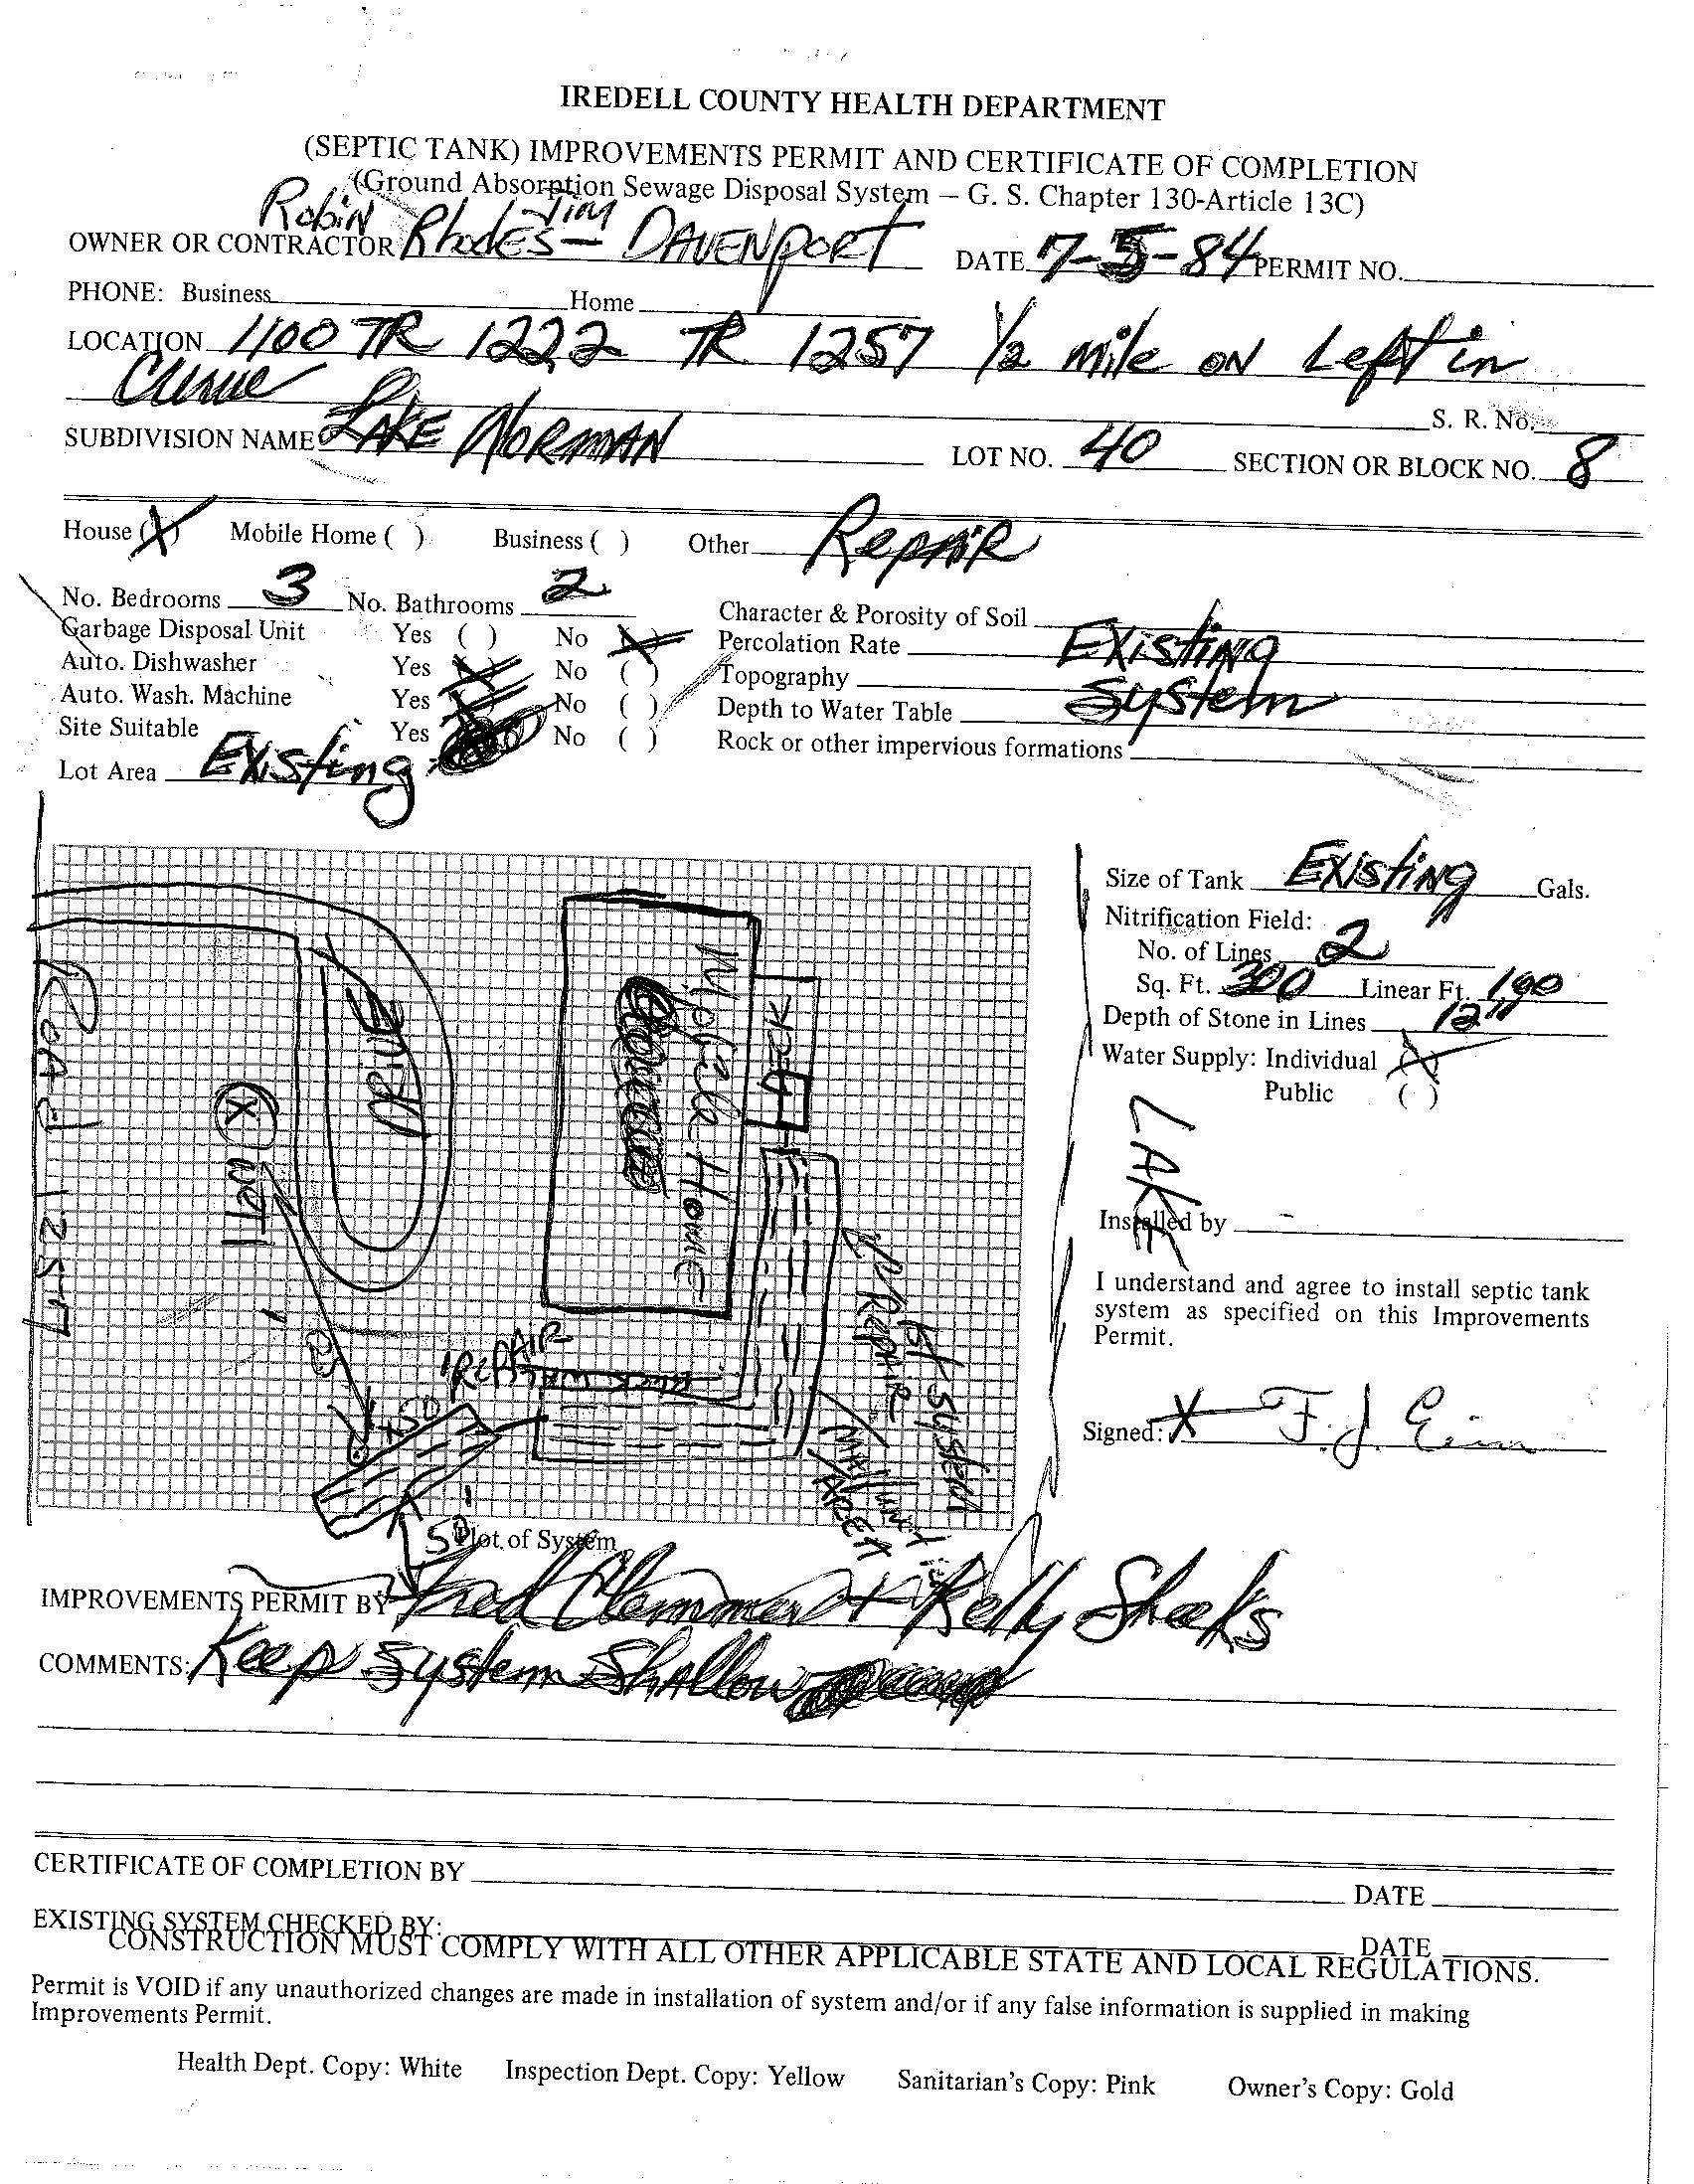 IREDELL COUNTY HEALTH DEPARTMENT
(SEPTIC TANK) IMPROVEMENTS PERMIT AND CERTIFICATE OF COMPLETION
(Ground Absorption Sewage Disposal System – G. S. Chapter 130-Article 13C)
Robin Jim
OWNER OR CONTRACTOR Rhodes – DAVENPORT DATE 7-5-84 PERMIT NO.
PHONE: Business Home
LOCATION 1100 TR 1222 TR 1257 1/2 mile ON Left in
Curve
S. R. No.
SUBDIVISION NAME LAKE NORMAN LOT NO. 40 SECTION OR BLOCK NO. 8
House (X) Mobile Home ( ) Business ( ) Other Repair
No. Bedrooms 3 No. Bathrooms 2 Character & Porosity of Soil
Garbage Disposal Unit Yes ( ) No (X) Percolation Rate Existing
Auto. Dishwasher Yes (X) No ( ) Topography
Auto. Wash. Machine Yes (X) No ( ) Depth to Water Table System
Site Suitable Yes No ( ) Rock or other impervious formations
Lot Area Existing
Size of Tank Existing Gals.
Nitrification Field:
No. of Lines 2
Sq. Ft. 300 Linear Ft. 190
Depth of Stone in Lines 12"
Water Supply: Individual (X)
Public ( )
LAKE
Installed by
I understand and agree to install septic tank
system as specified on this Improvements
Permit.
Signed: X F. J.
Road 1257
Drive
X Well
Mobile Home
DECK
REPAIR
REPAIR
System
AREA
50
50
Plot of System
IMPROVEMENTS PERMIT BY Fred Clemmer + Kelly Sheeks
COMMENTS: Keep System Shallow
CERTIFICATE OF COMPLETION BY DATE
EXISTING SYSTEM CHECKED BY: DATE
CONSTRUCTION MUST COMPLY WITH ALL OTHER APPLICABLE STATE AND LOCAL REGULATIONS.
Permit is VOID if any unauthorized changes are made in installation of system and/or if any false information is supplied in making
Improvements Permit.
Health Dept. Copy: White Inspection Dept. Copy: Yellow Sanitarian's Copy: Pink Owner's Copy: Gold